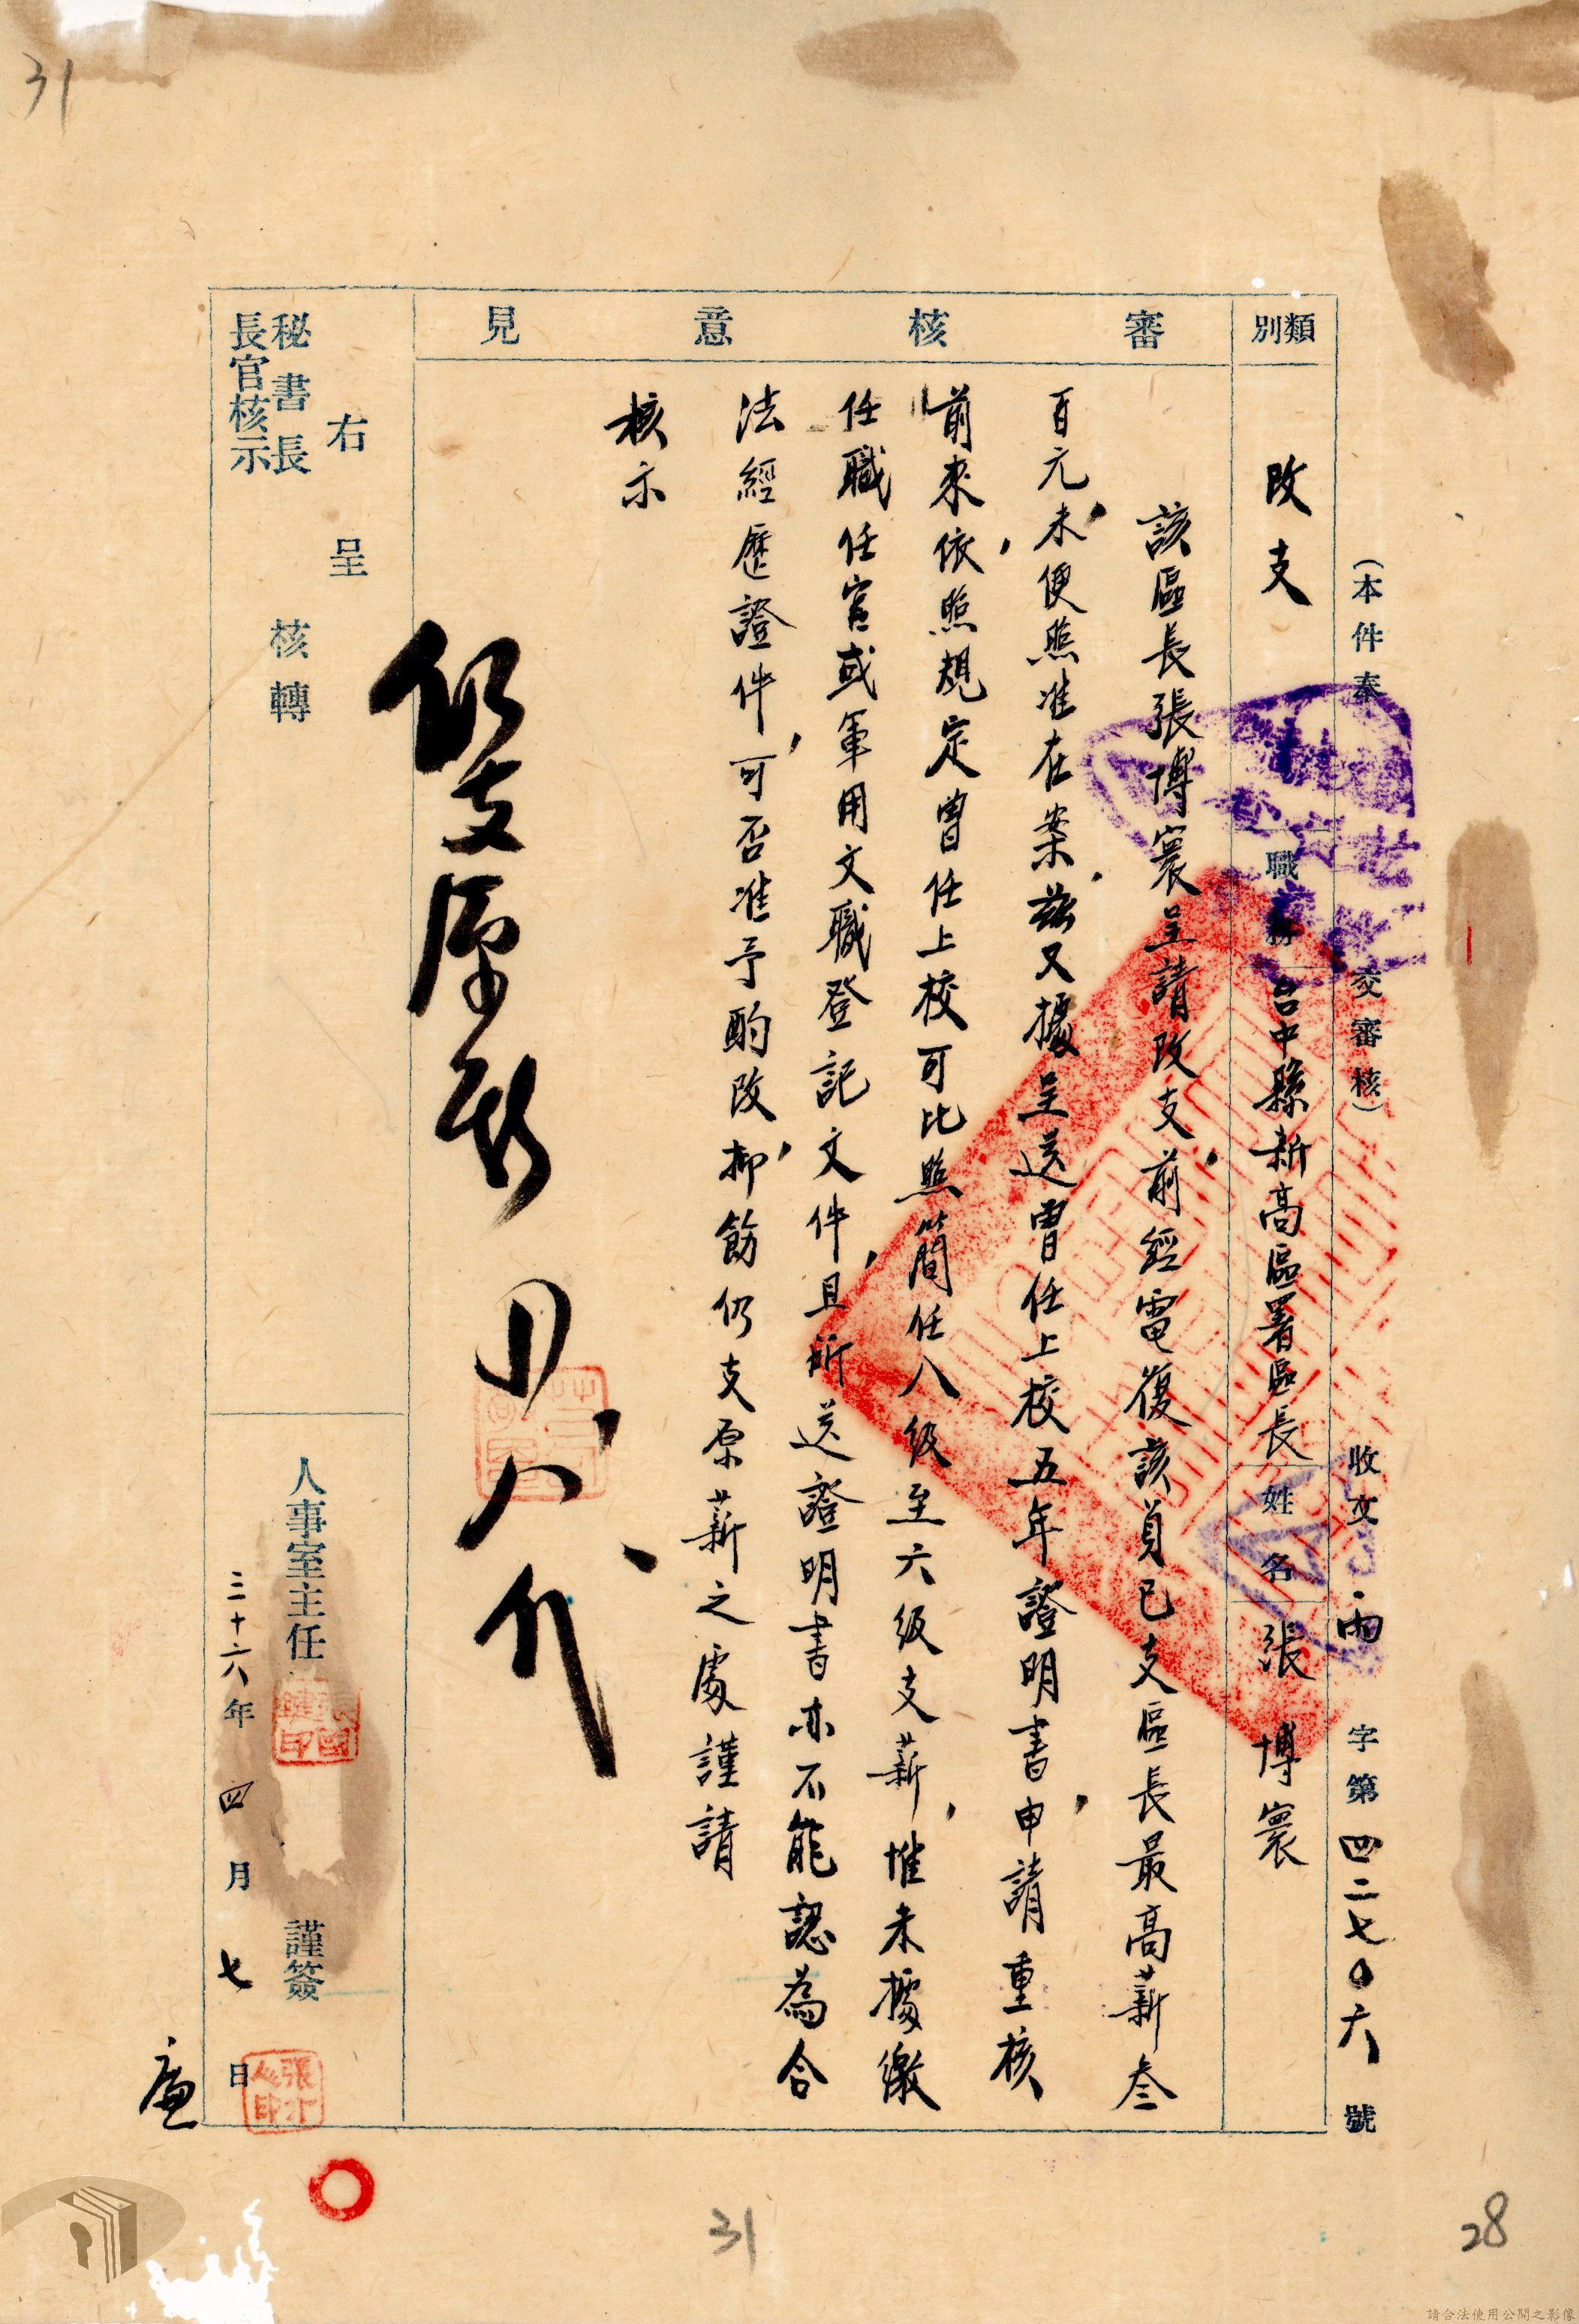 31
(本件奉 交審核) 收文 雨 字第四二七〇六號
類別 改支 職務 台中縣新高區署區長 姓名 張博寰
審核意見
該區長張博寰呈請改支，前經電復該員已支區長最高薪叁
百元，未便照准在案，茲又據呈送曾任上校五年證明書，申請重核
前來，依照規定曾任上校可比照簡任八級至六級支薪，惟未據繳
任職任官或軍用文職登記文件，且所送證明書亦不能認為合
法經歷證件，可否准予酌改，抑飭仍支原薪之處謹請
核示
仍支原薪
右呈
秘書長 核轉
長官核示
人事室主任 謹簽
三十六年四月七日
31
28
請合法使用公開之影像